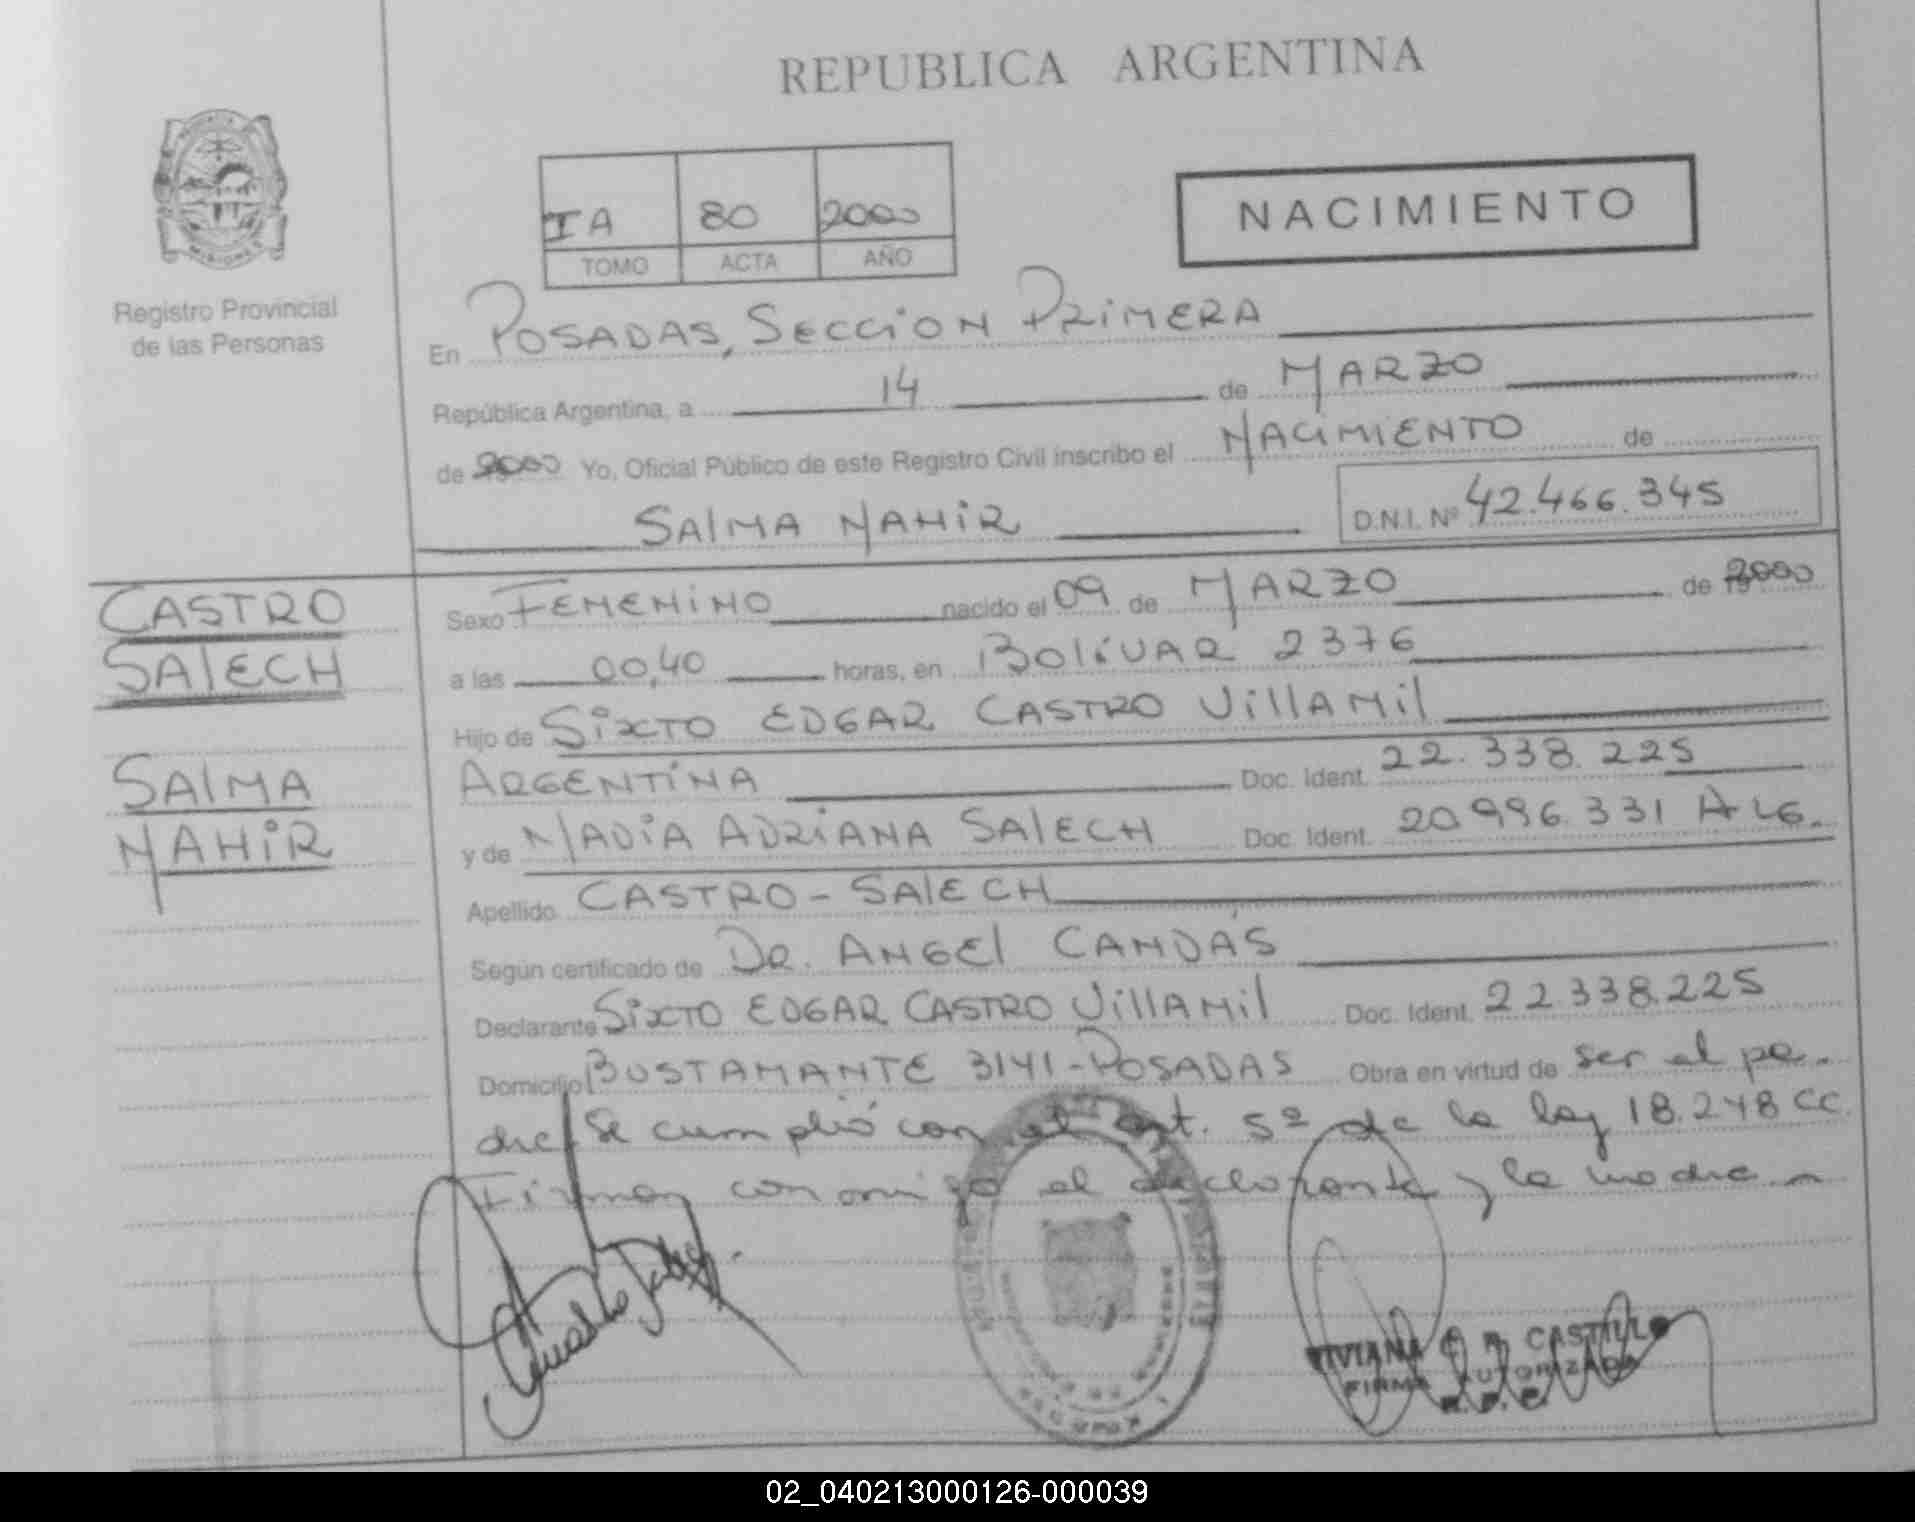 REPUBLICA ARGENTINA
IA 80 2000
TOMO ACTA AÑO
NACIMIENTO
Registro Provincial
de las Personas
En POSADAS, SECCION PRIMERA
República Argentina, a 14 de MARZO
de 2000 Yo, Oficial Público de este Registro Civil inscribo el NACIMIENTO de
SALMA NAHIR D.N.I. Nº 42.466.345
CASTRO
SALECH
SALMA
NAHIR
Sexo FEMENINO nacido el 09 de MARZO de 2000
a las 00,40 horas, en BOLIVAR 2376
Hijo de SIXTO EDGAR CASTRO VILLAMIL
ARGENTINA Doc. Ident. 22.338.225
y de NADIA ADRIANA SALECH Doc. Ident. 20.996.331 ARG.
Apellido CASTRO - SALECH
Según certificado de DR. ANGEL CANDAS
Declarante SIXTO EDGAR CASTRO VILLAMIL Doc. Ident. 22.338.225
Domicilio BUSTAMANTE 3141 - POSADAS Obra en virtud de ser el pa-
dre. Se cumplió con el art. 5º de la ley 18.248 CC.
Firman conmigo el declarante y la madre
VIVIANA E. R. CASTILLO
FIRMA AUTORIZADA
R. P. P.
02_040213000126-000039